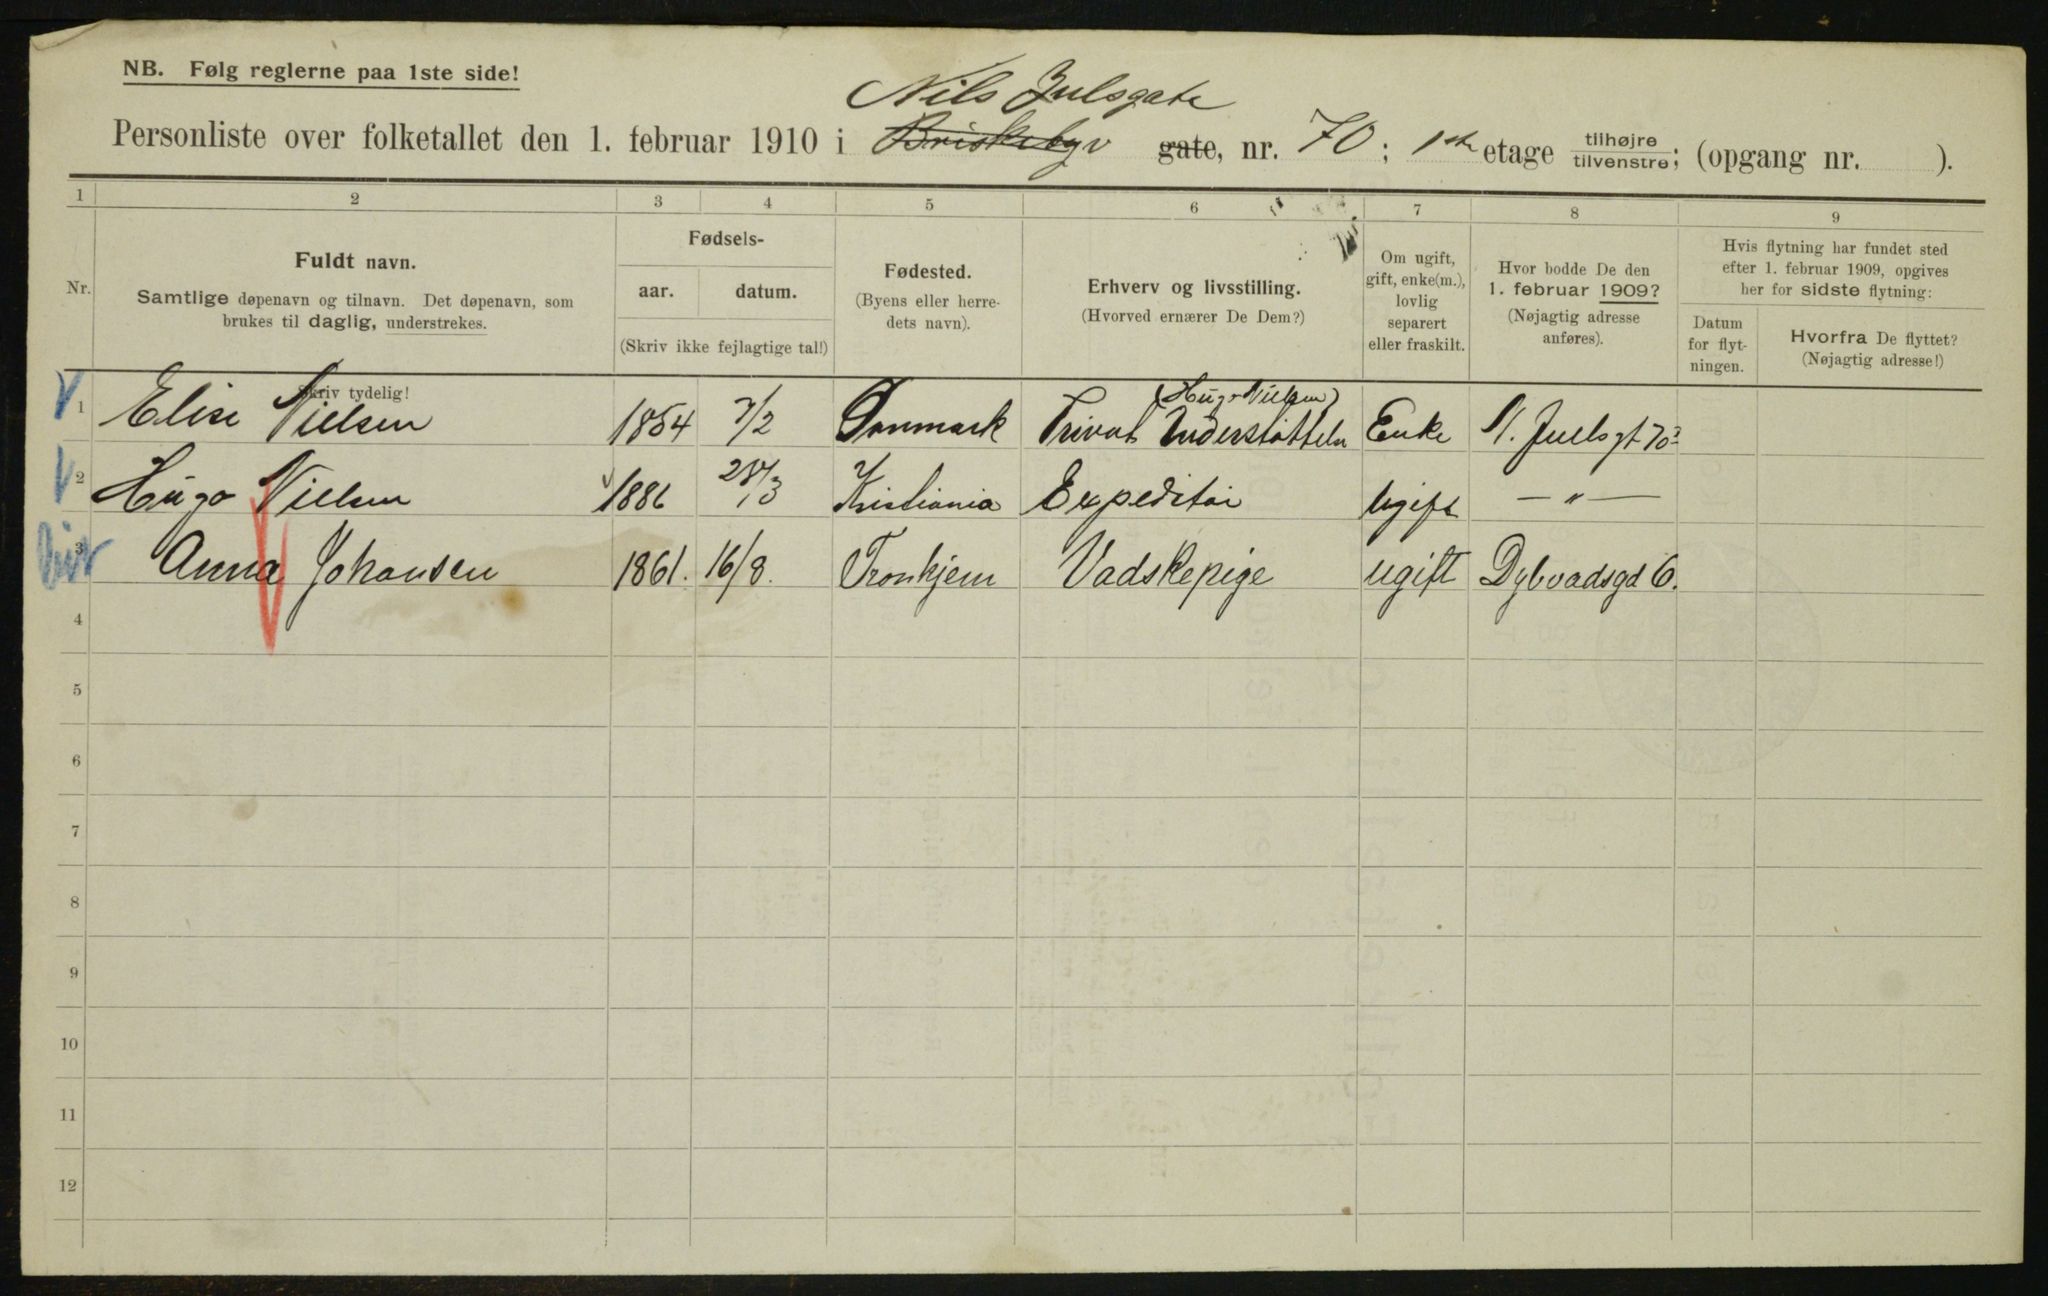 NB. Følg reglerne paa 1ste side!
Nils Julsgate
Personliste over folketallet den 1. februar 1910 i Briskebyv gate, nr. 70; 1ste etage tilhøjre tilvenstre; (opgang nr. ).
1 2 3 4 5 6 7 8 9
Nr.
Fuldt navn.
Samtlige døpenavn og tilnavn. Det døpenavn, som
brukes til daglig, understrekes.
Skriv tydelig!
Fødsels-
aar. datum.
(Skriv ikke fejlagtige tal!)
Fødested.
(Byens eller herre-
dets navn).
Erhverv og livsstilling.
(Hvorved ernærer De Dem?)
Om ugift,
gift, enke(m.),
lovlig
separert
eller fraskilt.
Hvor bodde De den
1. februar 1909?
(Nøjagtig adresse
anføres).
Hvis flytning har fundet sted
efter 1. februar 1909, opgives
her for sidste flytning:
Datum
for flyt-
ningen.
Hvorfra De flyttet?
(Nøjagtig adresse!)
(Hugo Nielsen)
1 Elise Nielsen 1854 7/2 Danmark Privat Understøttelse Enke N. Juelsgt 70
2 Hugo Nielsen 1886 /3 Kristiania Expeditør Ugift — " —
3 Anna Johansen 1861. 16/8. Tronhjem Vadskepige ugift Dybvadsgd 6.
4
5
6
7
8
9
10
11
12